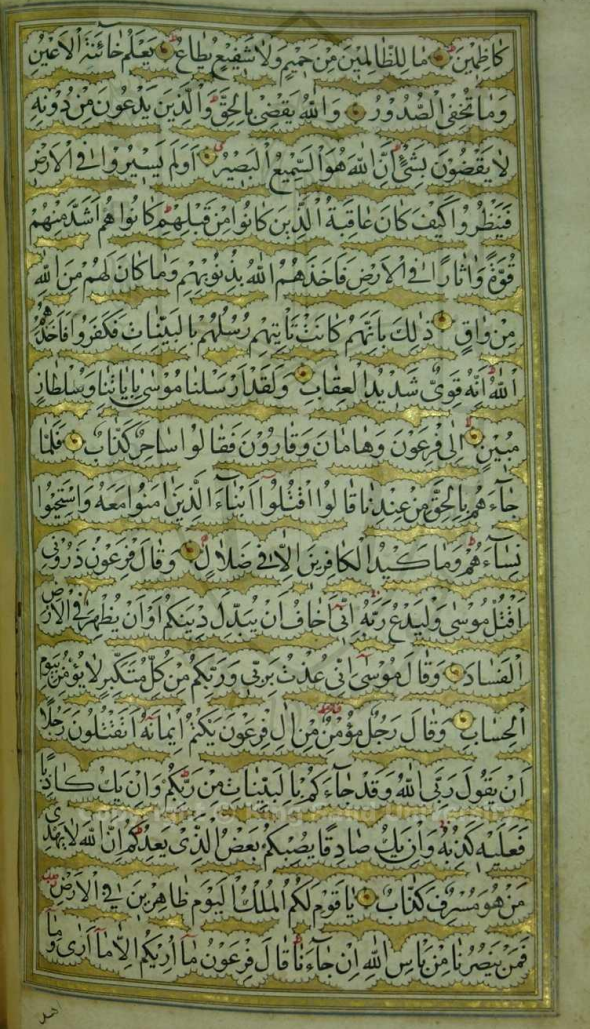 كَاظِمِينَ مَا لِلظَّالِمِينَ مِنْ حَمِيمٍ وَلَا شَفِيعٍ يُطَاعُ يَعْلَمُ خَائِنَةَ الْأَعْيُنِ
وَمَا تُخْفِي الصُّدُورُ وَاللَّهُ يَقْضِي بِالْحَقِّ وَالَّذِينَ يَدْعُونَ مِنْ دُونِهِ
لَا يَقْضُونَ بِشَيْءٍ إِنَّ اللَّهَ هُوَ السَّمِيعُ الْبَصِيرُ أَوَلَمْ يَسِيرُوا فِي الْأَرْضِ
فَيَنْظُرُوا كَيْفَ كَانَ عَاقِبَةُ الَّذِينَ كَانُوا مِنْ قَبْلِهِمْ كَانُوا هُمْ أَشَدَّ مِنْهُمْ
قُوَّةً وَآثَارًا فِي الْأَرْضِ فَأَخَذَهُمُ اللَّهُ بِذُنُوبِهِمْ وَمَا كَانَ لَهُمْ مِنَ اللَّهِ
مِنْ وَاقٍ ذَلِكَ بِأَنَّهُمْ كَانَتْ تَأْتِيهِمْ رُسُلُهُمْ بِالْبَيِّنَاتِ فَكَفَرُوا فَأَخَذَهُمُ
اللَّهُ إِنَّهُ قَوِيٌّ شَدِيدُ الْعِقَابِ وَلَقَدْ أَرْسَلْنَا مُوسَى بِآيَاتِنَا وَسُلْطَانٍ
مُبِينٍ إِلَى فِرْعَوْنَ وَهَامَانَ وَقَارُونَ فَقَالُوا سَاحِرٌ كَذَّابٌ فَلَمَّا
جَاءَهُمْ بِالْحَقِّ مِنْ عِنْدِنَا قَالُوا اقْتُلُوا أَبْنَاءَ الَّذِينَ آمَنُوا مَعَهُ وَاسْتَحْيُوا
نِسَاءَهُمْ وَمَا كَيْدُ الْكَافِرِينَ إِلَّا فِي ضَلَالٍ وَقَالَ فِرْعَوْنُ ذَرُونِي
أَقْتُلْ مُوسَى وَلْيَدْعُ رَبَّهُ إِنِّي أَخَافُ أَنْ يُبَدِّلَ دِينَكُمْ أَوْ أَنْ يُظْهِرَ فِي الْأَرْضِ
الْفَسَادَ وَقَالَ مُوسَى إِنِّي عُذْتُ بِرَبِّي وَرَبِّكُمْ مِنْ كُلِّ مُتَكَبِّرٍ لَا يُؤْمِنُ بِيَوْمِ
الْحِسَابِ وَقَالَ رَجُلٌ مُؤْمِنٌ مِنْ آلِ فِرْعَوْنَ يَكْتُمُ إِيمَانَهُ أَتَقْتُلُونَ رَجُلًا
أَنْ يَقُولَ رَبِّيَ اللَّهُ وَقَدْ جَاءَكُمْ بِالْبَيِّنَاتِ مِنْ رَبِّكُمْ وَإِنْ يَكُ كَاذِبًا
فَعَلَيْهِ كَذِبُهُ وَإِنْ يَكُ صَادِقًا يُصِبْكُمْ بَعْضُ الَّذِي يَعِدُكُمْ إِنَّ اللَّهَ لَا يَهْدِي
مَنْ هُوَ مُسْرِفٌ كَذَّابٌ يَا قَوْمِ لَكُمُ الْمُلْكُ الْيَوْمَ ظَاهِرِينَ فِي الْأَرْضِ
فَمَنْ يَنْصُرُنَا مِنْ بَأْسِ اللَّهِ إِنْ جَاءَنَا قَالَ فِرْعَوْنُ مَا أُرِيكُمْ إِلَّا مَا أَرَى وَمَا